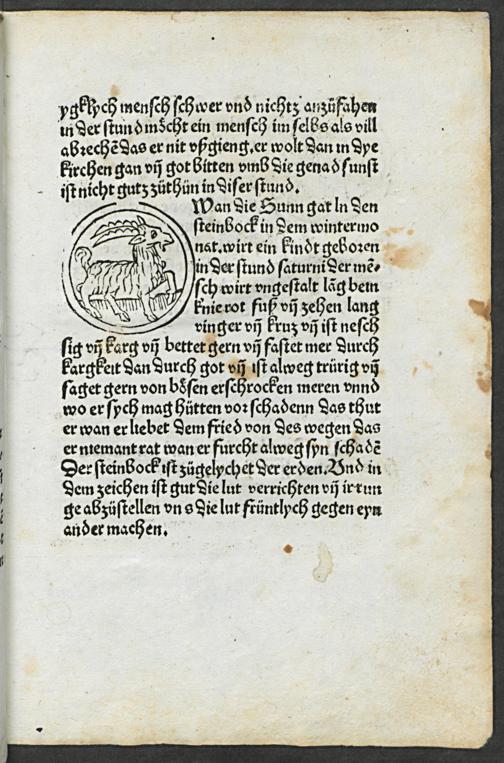 ygklych mensch schwer vnd nichtz anzüfahen
in der stund möcht ein mensch im selbs als vill
abzechē das er nit vßgieng, er wolt dan in dye
kirchen gan vn̄ got bitten vmb die genad sunst
ist nicht gutz zůthůn in diser stund.
Wan die Sunn gat In den
steinbock in dem wintermo
nat. wirt ein kindt geboren
in der stund saturni der mē⸗
sch wirt vngestalt lāg bein
knie rot fuß vn̄ zehen lang
vinger vn̄ kruz vn̄ ist nesch
sig vn̄ karg vn̄ bettet gern vn̄ fastet mer durch
kargkeit dan durch got vn̄ ist alweg trürig vn̄
saget gern von bösen erschrocken meren vnnd
wo er sych mag hütten vor schadenn das thut
er wan er liebet dem fried von des wegen das
er niemant rat wan er furcht alweg syn schadē
Der steinbock ist zůgelychet der erden. Vnd in
dem zeichen ist gut die lut verrichten vn̄ irrun
ge abzůstellen vn s die lut früntlych gegen eyn
ander machen.